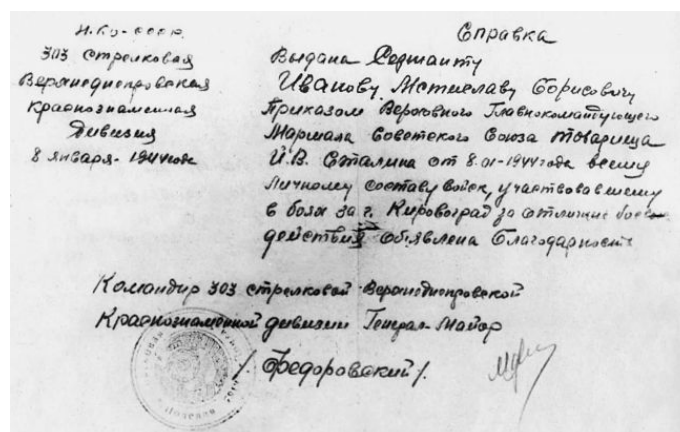 Н.К.О.-СССР
303 стрелковая
Верхнеднепровская
Краснознаменная
Дивизия
8 января - 1944 года
Справка
Выдана Сержанту
Иванову Мстиславу Борисовичу
Приказом Верховного Главнокомандующего
Маршала Советского Союза товарища
И.В. Сталина от 8.01-1944 года всему
личному составу войск, участвовавшему
в боях за г. Кировоград за отличие
действия объявлена благодарность
Командир 303 стрелковой Верхнеднепровской
Краснознаменной дивизии Генерал-Майор
/. Федоровский /.